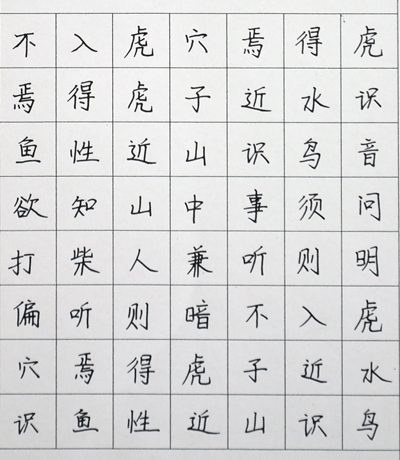 不入虎穴焉得虎
焉得虎子近水识
鱼性近山识鸟音
欲知山中事须问
打柴人兼听则明
偏听则暗不入虎
穴焉得虎子近水
识鱼性近山识鸟